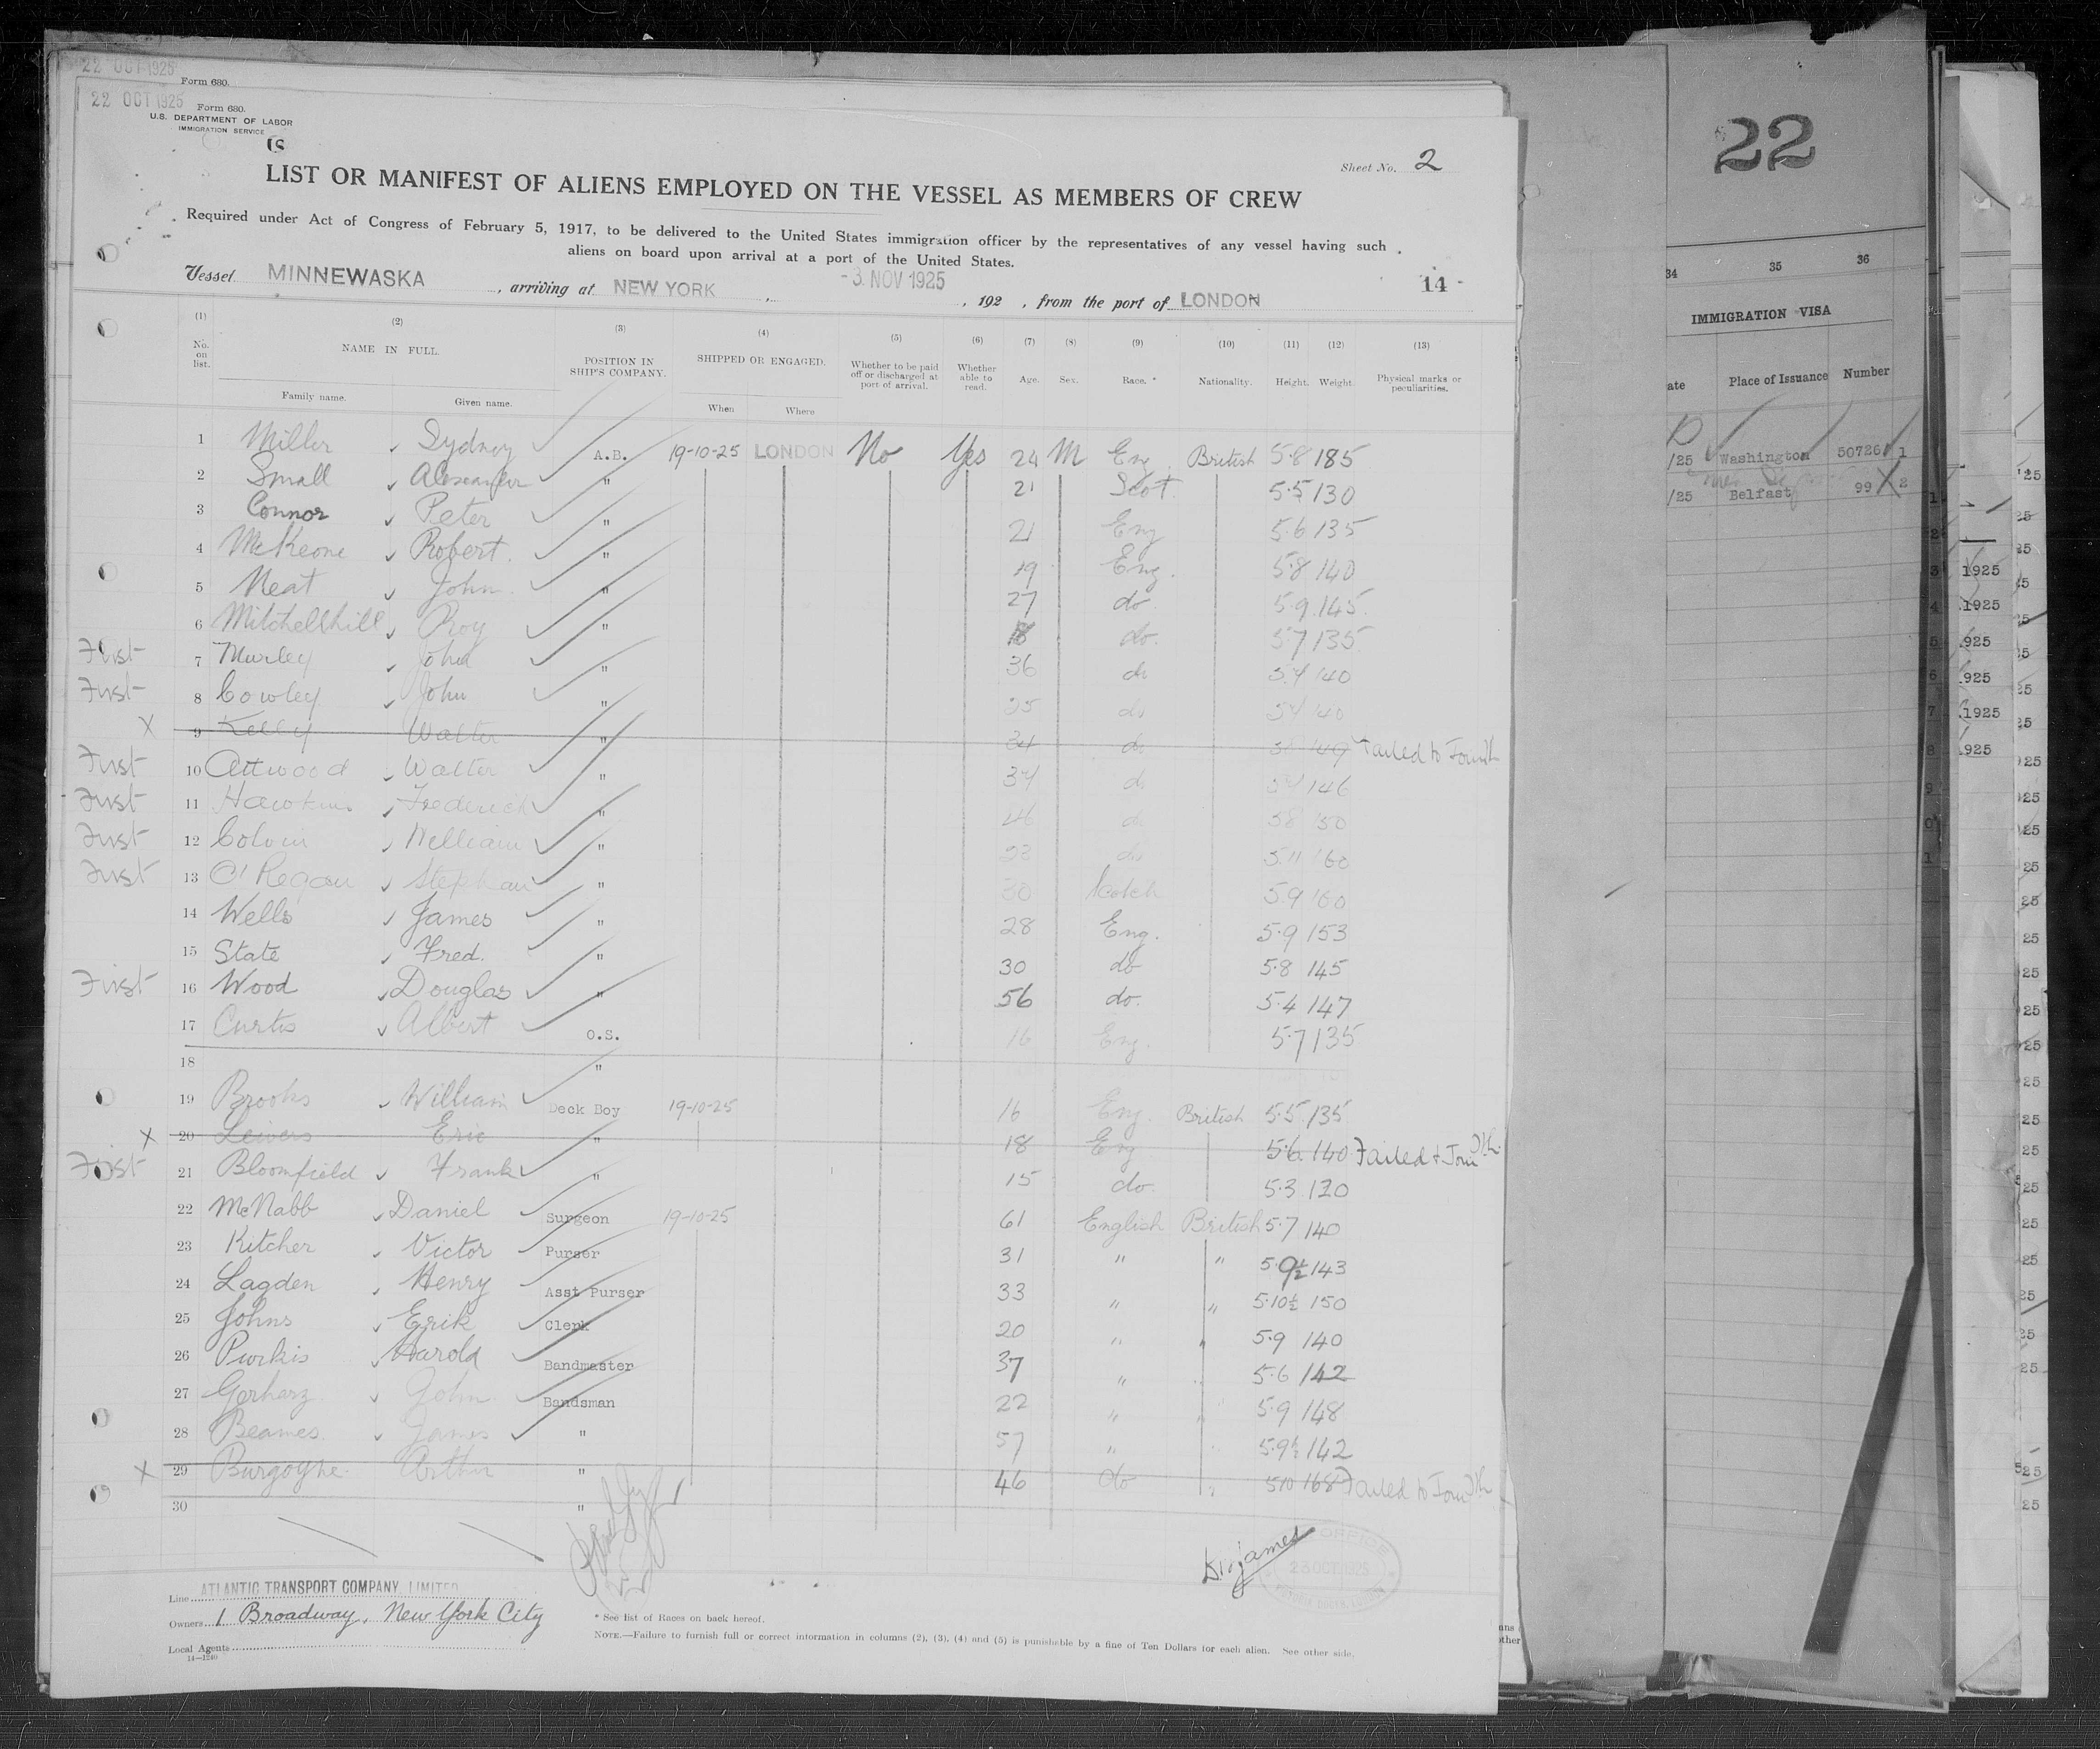 22 OCT 1925
Form 680.
22 OCT 1925
Form 680.
U.S. DEPARTMENT OF LABOR
IMMIGRATION SERVICE
Sheet No. 2
LIST OR MANIFEST OF ALIENS EMPLOYED ON THE VESSEL AS MEMBERS OF CREW
Required under Act of Congress of February 5, 1917, to be delivered to the United States immigration officer by the representatives of any vessel having such
aliens on board upon arrival at a port of the United States.
Vessel MINNEWASKA, arriving at NEW YORK, -3 NOV 1925, 192 , from the port of LONDON 14 -
(1) (2) (3) (4) (5) (6) (7) (8) (9) (10) (11) (12) (13)
No. on list. NAME IN FULL. POSITION IN SHIP'S COMPANY. SHIPPED OR ENGAGED. Whether to be paid off or discharged at port of arrival. Whether able to read. Age. Sex. Race. * Nationality. Height. Weight. Physical marks or peculiarities.
Family name. Given name. When Where
1 Miller Sydney A.B. 19-10-25 LONDON No Yes 24 M Eng British 5.8 185
2 Small Alexander " 21 Scot. 5.5 130
3 Connor Peter " 21 Eng 5.6 135
4 McKeone Robert. " 19 Eng. 5.8 140
5 Neat John. " 27 do. 5.9 145
6 Mitchellhill Roy " 18 do. 5.7 135
First 7 Murley John " 36 do 5.4 140
First 8 Cowley John " 25 do 5.4 140
X 9 Kelly Walter " 34 do Failed to Join
First 10 Attwood Walter " 34 do 146
First 11 Hawkins Frederick " 46 do 5.8 150
First 12 Colvin William " 23 do 5.11 160
First 13 O'Regan Stephan " 30 Scotch 5.9 160
14 Wells James " 28 Eng. 5.9 153
15 State Fred. " 30 do 5.8 145
First 16 Wood Douglas " 56 do. 5.4 147
17 Curtis Albert O.S. 16 Eng. 5.7 135
18 "
19 Brooks William Deck Boy 19-10-25 16 Eng. British 5.5 135
X 20 Leivers Eric " 18 Eng 5.6 140 Failed to Join
First 21 Bloomfield Frank " 15 do. 5.3 120
22 McNabb Daniel Surgeon 19-10-25 61 English British 5.7 140
23 Kitcher Victor Purser 31 " " 5.9½ 143
24 Lagden Henry Asst Purser 33 " " 5.10½ 150
25 Johns Erik Clerk 20 " " 5.9 140
26 Purkis Harold Bandmaster 37 " " 5.6 142
27 Gerharz John Bandsman 22 " " 5.9 148
28 Beames. James " 57 " " 5.9½ 142
X 29 Burgoyne. Arthur " 46 do " 5.10 168 Failed to Join
30 "
23 OCT 1925
Line ATLANTIC TRANSPORT COMPANY, LIMITED
Owners 1 Broadway, New York City
Local Agents
14—1240
* See list of Races on back hereof.
NOTE.—Failure to furnish full or correct information in columns (2), (3), (4) and (5) is punishable by a fine of Ten Dollars for each alien. See other side.
22
34 35 36
IMMIGRATION VISA
ate Place of Issuance Number
/25 Washington 50726 1
/25 Belfast 99 2